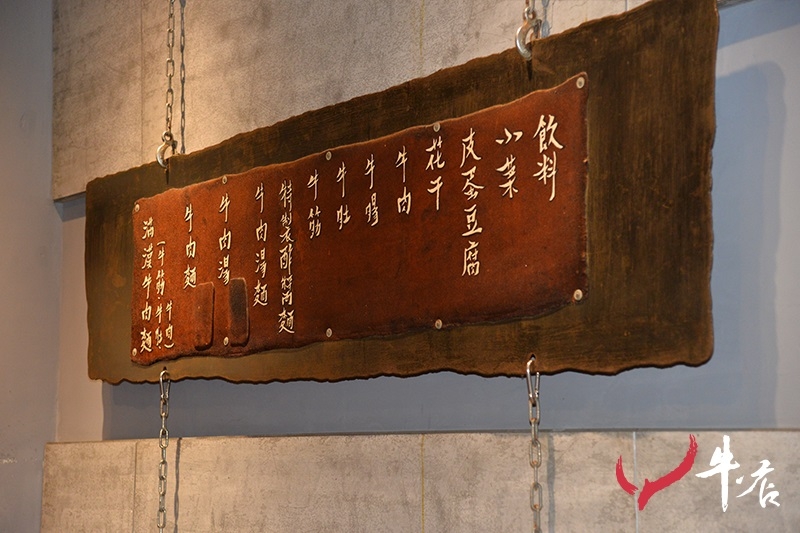 飲料
小菜
皮蛋豆腐
花干
牛肉
牛腸
牛肚
牛筋
特製炸醬麵
牛肉湯麵
牛肉湯
牛肉麵
(牛筋·牛肚·牛肉)
滿漢牛肉麵
牛店